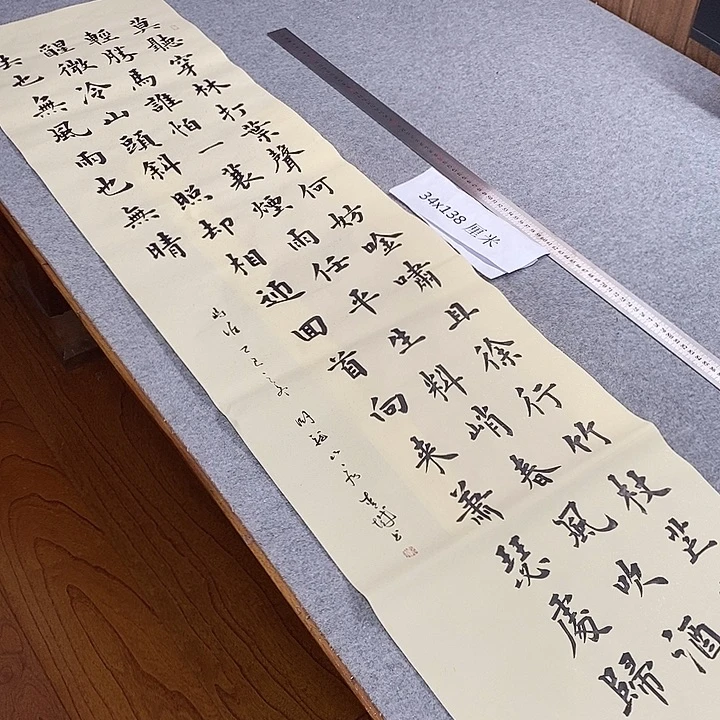 莫聽穿林打葉聲何妨唫嘯且徐行竹杖芒
輕勝馬誰怕一蓑煙雨任平生料峭春風吹酒
醒微冷山頭斜照却相迎回首向来蕭瑟處歸
去也無風雨也無晴
乙巳之冬
34x138 厘米